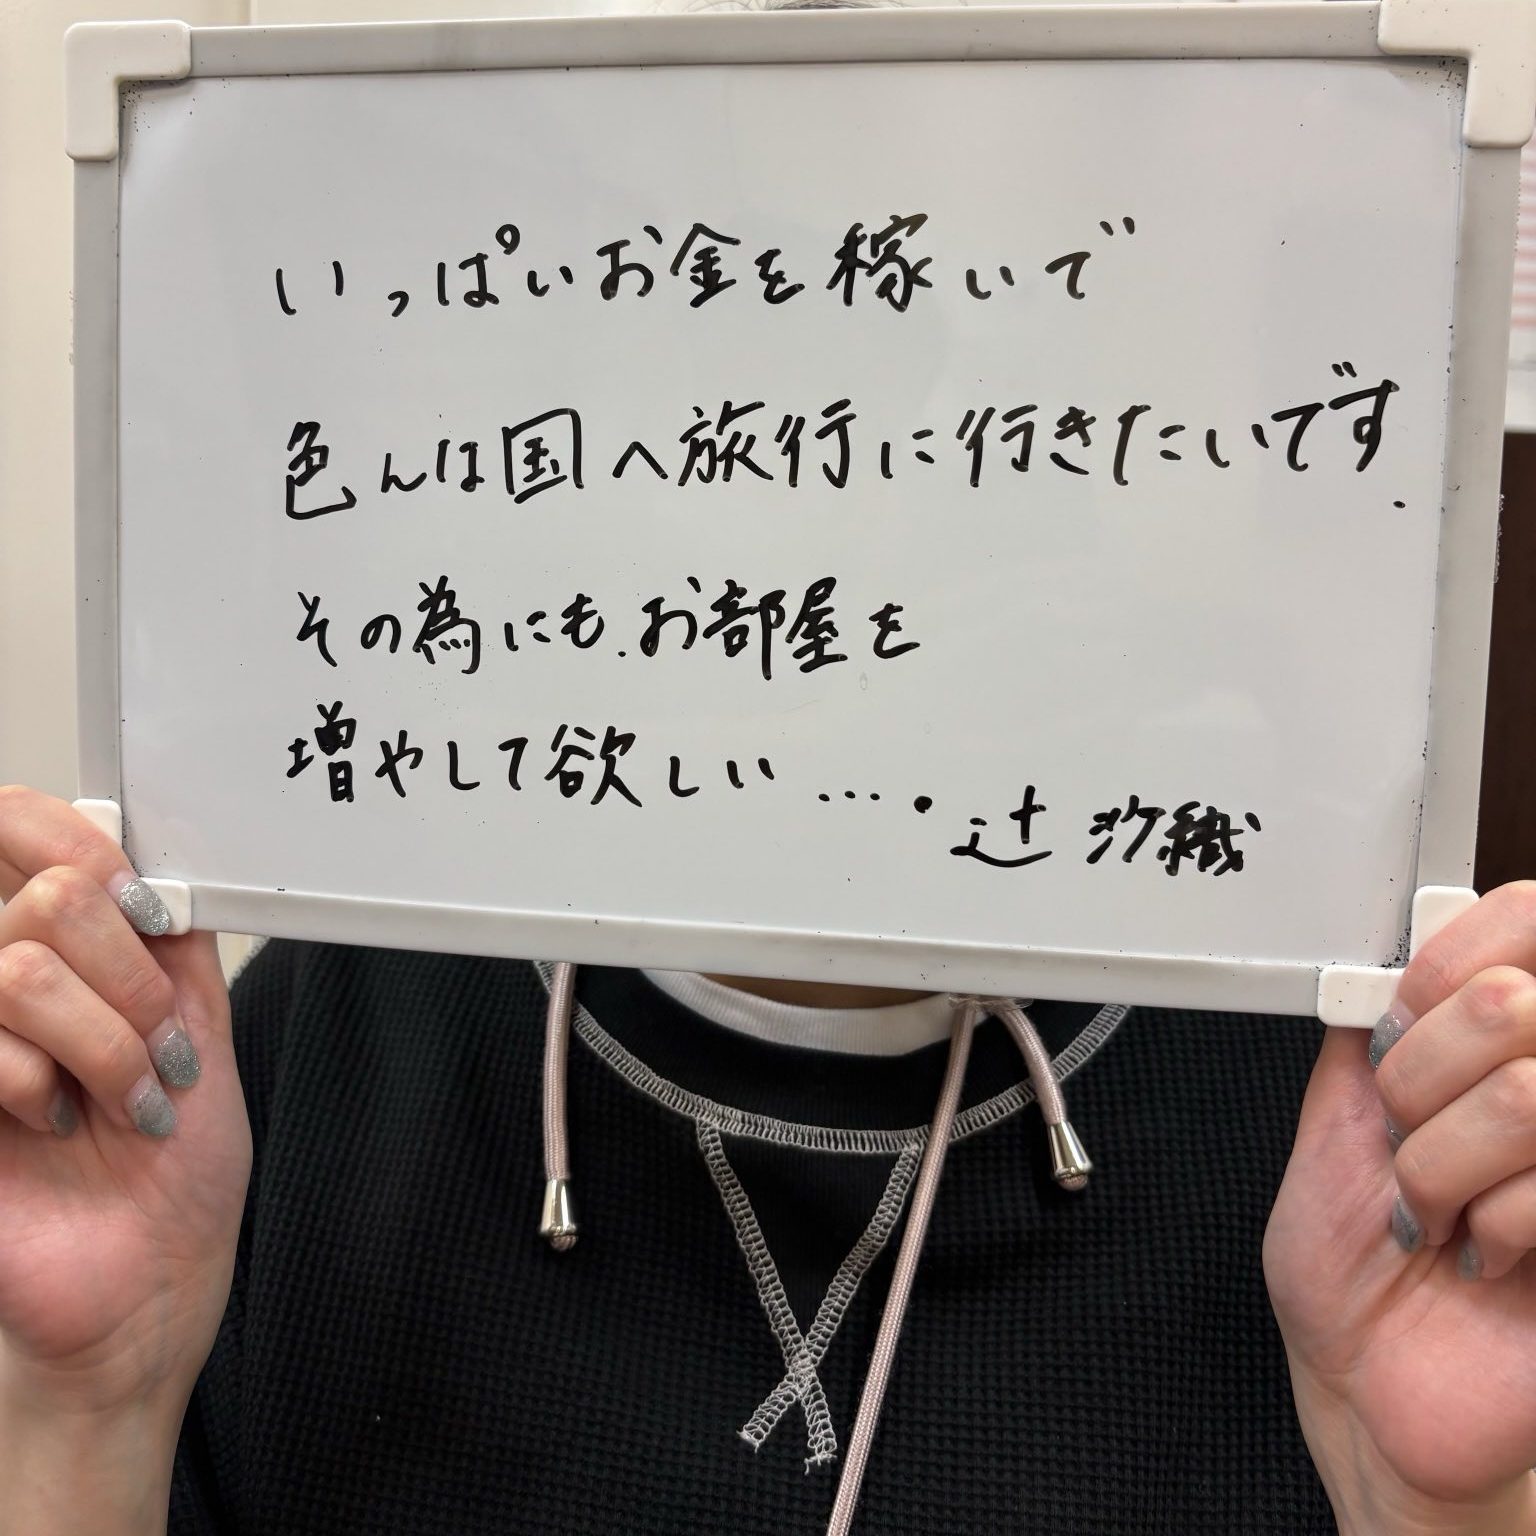 いっぱいお金を稼いで
色んは国へ旅行に行きたいです.
その為にも.お部屋を
増やして欲しい….
辻 汐織